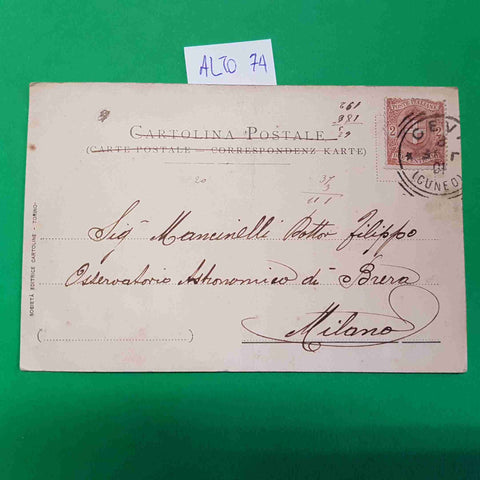 ALTO 74
CARTOLINA POSTALE
(CARTE POSTALE — CORRESPONDENZ KARTE)
2
CEVA
(CUNEO)
20
37
3
111
Sig Mancinelli Dottor Filippo
Osservatorio Astronomico di Brera
Milano
SOCIETÀ EDITRICE CARTOLINE - TORINO